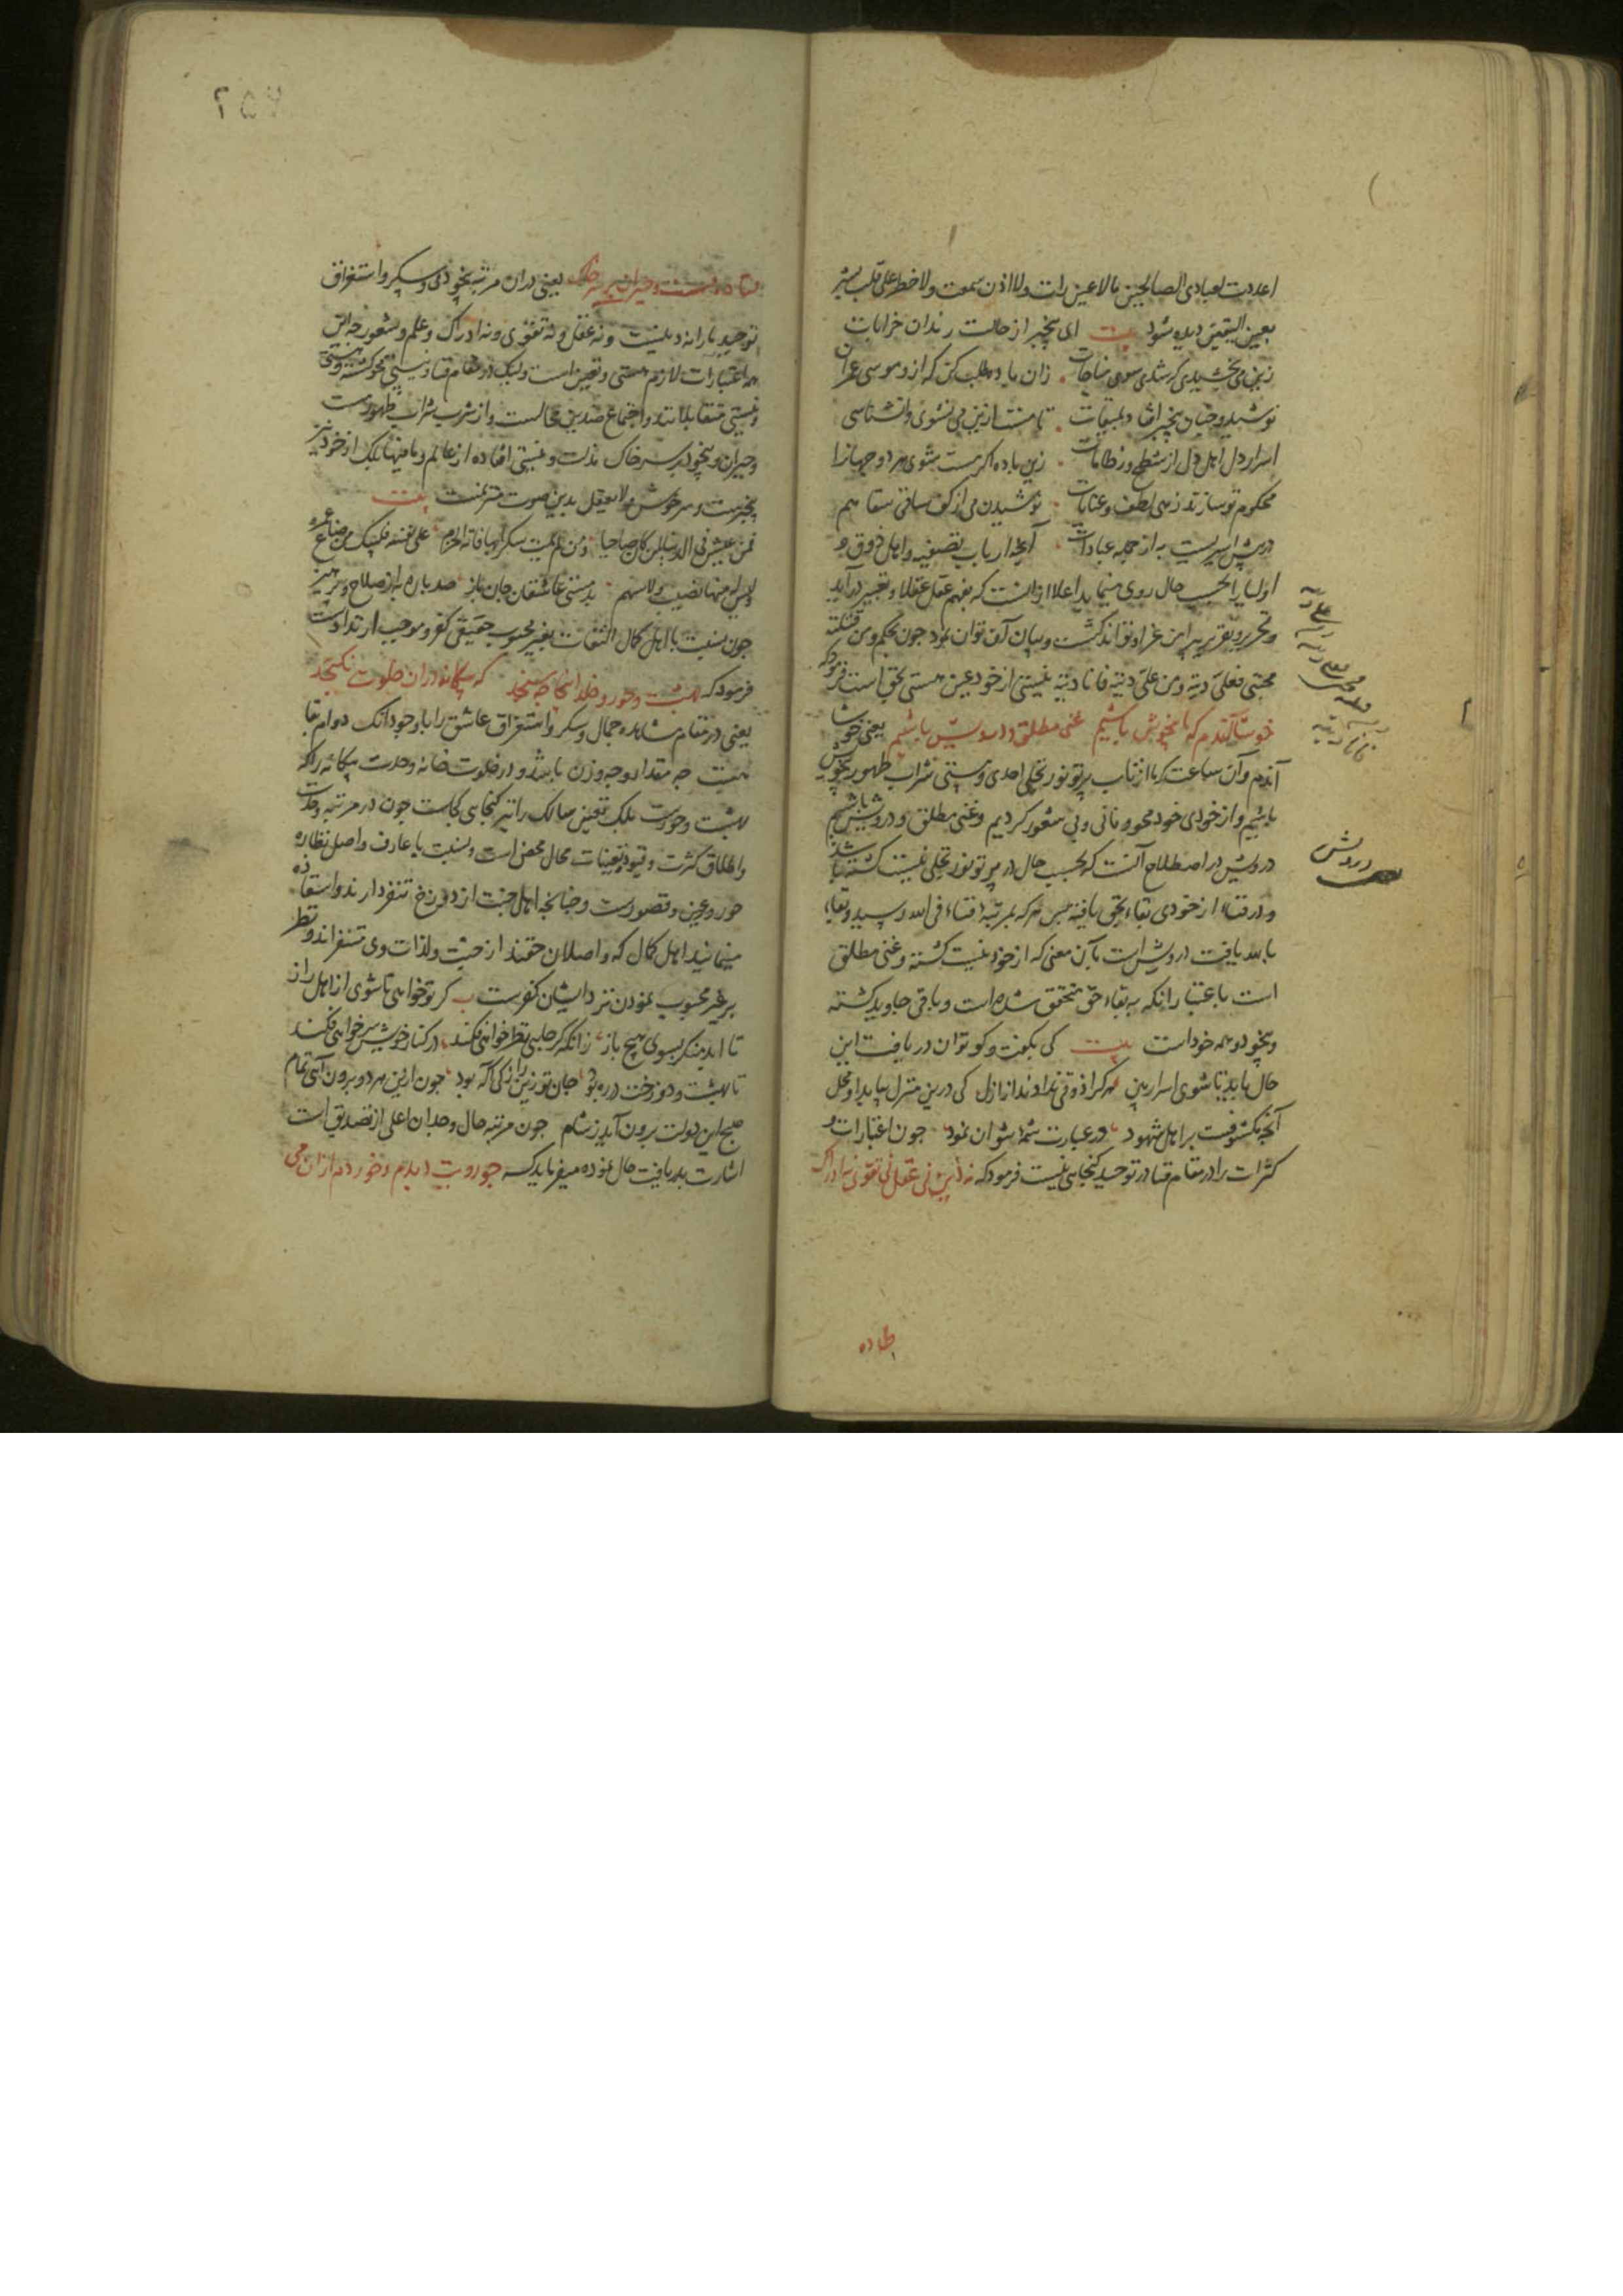 اعددت لعبادی الصالحین مالا عین رات ولا اذن سمعت ولا خطر علی قلب بشر
بعین الیقین دیده شود بیت ای بیخبر از حالت رندان خرابات
زین می نچشیدی که شدی سوی مناجات زان باده طلب کن که ازو موسی عمران
نوشید و چنان بیخبر افتاد بمیقات تا مست ازین می نشوی وانشناسی
اسرار دل اهل دل از شطح و ز طامات زین باده اکر مست شوی هر دو جهانرا
محکوم تو سازند زهی لطف و عنایات نوشیدن می از کف ساقی سقاهم
درویش اسیریست به از جمله عبادات آنچه ارباب تصفیه و اهل ذوق و
اولیا را بحسب حال روی مینماید اعلا از آنست که بفهم عقل عقلا و تعبیر درآید
و تحریر و تقریر پیرامن عز او تواند کشت و بیان آن توان نمود چون بحکم و من قتلته
محبتی فعلی دیته و من علی دیته فانا دیته نیستی از خود عین هستی بحق است فرمود که
خوشا آندم که ما بیخویش باشیم غنی مطلق و درویش باشیم یعنی خوشا
آندم و آن ساعت که ما از تاب پرتو نور تجلی احدی و مستی شراب طهور بیخویش
باشیم و از خودی خود محو و فانی و بی شعور کردیم و غنی مطلق و درویش باشیم
درویش در اصطلاح آنست که بحسب حال در پرتو نور تجلی نیست کشته باشد
و در فناء از خودی بقاء بحق یافته پس هر که بمرتبه فناء فی الله رسید و بقاء
بالله یافت درویش است بآن معنی که از خود نیست کشته و غنی مطلق
است باعتبار آنکه به بقاء حق متحقق شده است و باقی جاوید کشته
و بیخود و همه خود است بیت کی بکفت و کو توان دریافت این
حال باید تا شوی اسرار بین هر کرا ذوقی ندادند از ازل کی درین منزل بیابد او محل
آنچه مکشوفست بر اهل شهود در عبارت شمه نتوان نمود چون اعتبارات و
کثرات را در مقام فنا در توحید کنجایی نیست فرمود که نه دین نی عقل نی تقوی نه ادراک
علی دیته
درویش
فتاده مست و حیران بر سر خاک یعنی در آن مرتبه بیخودی و سکر و استغراق
توحید ما را نه دینیست و نه عقل و نه تقوی و نه ادراک و علم و شعور چه این
همه اعتبارات لازم هستی و تعین است ولیک در مقام فنا و نیستی محو کشته و هستی
و نیستی متقابلانند و اجتماع ضدین محالست و از شرب شراب طهور مست
و حیران و بیخود بر سر خاک مذلت و نیستی افتاده از عالم و مافیها بلک از خود نیز
بیخبرست و سرخوش و لایعقل بدین صوت مترنمست بیت
فمن عیش فی الدنیا لمن کان صاحیا و من لم یمت سکرا بها فاته الحزم علی نفسه فلیبک من ضاع عمره
ولیس له منها نصیب ولا سهم بدمستی عاشقان جان باز صد باره به از صلاح و پرهیز
چون نسبت با اهل کمال التفات بغیر محبوب حقیقی کفر و موجب ارتدادست
فرمود که بهشت و حور و خلد اینجا چه سنجد که بیکانه در آن خلوت نکنجد
یعنی در مقام مشاهده جمال و سکر و استغراق عاشق را با وجود آنک دوام بقا
نیست چه مقدار و چه وزن باشد و در خلوت خانه وحدت بیکانه را که
بهشت و حورست بلک تعین سالک را نیز کنجایی کجاست چون در مرتبه وحدت
و اطلاق کثرت و قیود و تعینات محال محض است و نسبت با عارف واصل نظاره
حور و عین و قصورست و چنانچه اهل جنت از دوزخ تنفر دارند و استعاذه
مینمایند اهل کمال که واصلان حقند از جنت و لذات وی متنفراند و نظر
بر غیر محبوب نمودن نزد ایشان کفرست بیت کر تو خواهی تا شوی از اهل راز
تا ابد منکر بسوی هیچ باز زانکه کر جایی نظر خواهی فکند در کنار خویش سر خواهی فکند
تا بهشت و دوزخت در ره بود جان تو زین راز کی آکه بود چون ازین هر دو برون آیی تمام
صبح این دولت برون آید ز شام چون مرتبه حال و وجدان اعلی از تصدیق است
اشارت بدریافت حال نموده میفرماید که چو رویت دیدم و خوردم از آن می
فتاده